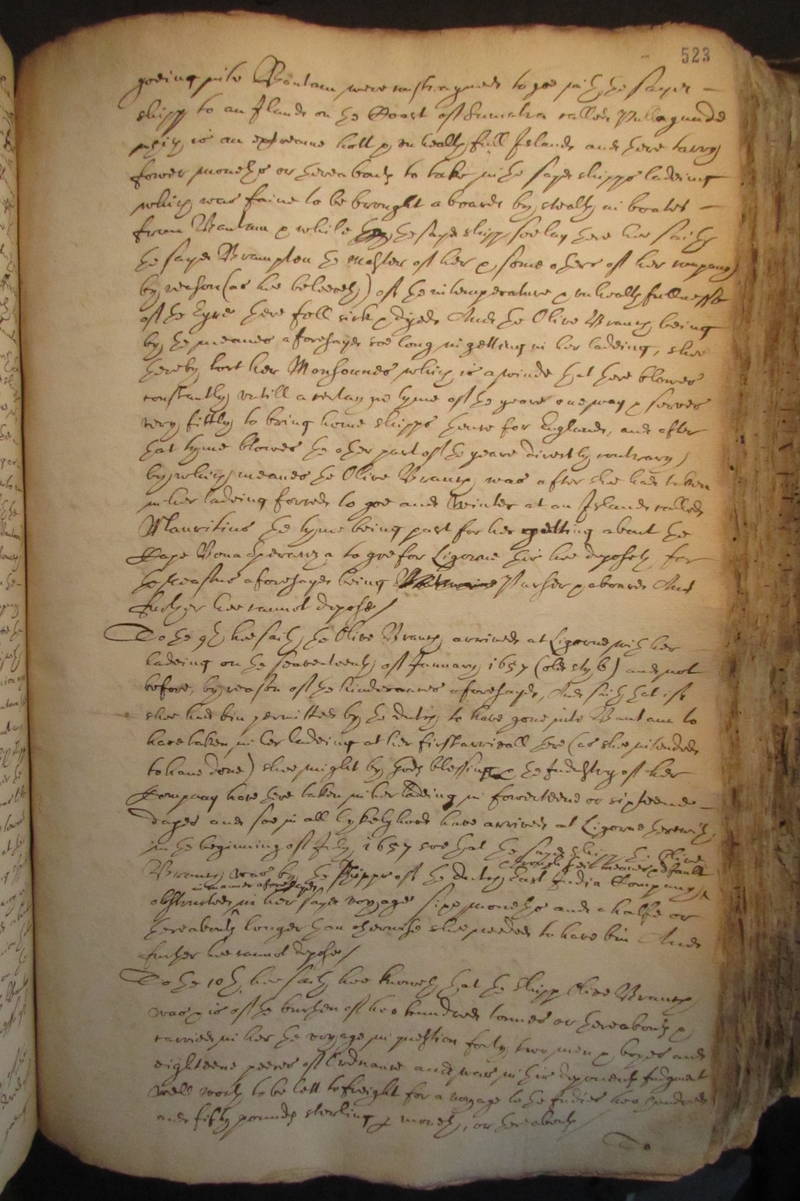 523
goeing into Bantam were constrayned to goe with the sayd
shipp to an Island on the Coast of Sumatra called Pullagunde
which is an extreame hott & unhealthfull Island and there tarry
fower moneths or thereabouts to take in the sayd shipps ladeing
which was faine to be brought aboard by stealth in boates
from Bantam & while the sayd shipp soe lay there hee saith
the sayd Brampton the Master of her & some others of her company
by reason (as hee beleeveth) of the intemperature & unhealthfullnesse
of the Ayre there fell sick & dyed And the Olive Branch being
by the meanes aforesayd soe long in getting in her ladeing, shee
thereby lost her Monsoones which is a winde that there blowes
constantly untill a certayne tyme of the yeare one way & serves
very fittly to bring home shipps thence for England, and after
that tyme blowes the other part of the yeare directly contrary
by which meanes the Olive Branch was after she had taken
in her ladeing forced to goe and Winter at an Island called
Mauritius the tyme being past for her getting about the
Cape Bona Speranza to goe for Ligorne this hee deposeth for
the reasons aforesayd being Purser aboard And
further hee cannot depose/
To the 9th hee saith the Olive Branch arrived at Ligorne with her
ladeing on the seaventeenth of January 1657 (old style) and not
before, by reason of the hinderances aforesayd, And saith that if
shee had bin permitted by the dutch to have gone into Bantam to
have taken in her ladeing at her first arrivall there (as shee intended
to have done) shee might by Gods blessing & the Industry of her
Company have there taken in her ladeing in fowerteene or sixteene
dayes and soe in all lykelyhood have arrived at Ligorne therewith
in the beginning of July 1657 soe that the sayd shipp the Olive
through their meanes & default
Branch was by the shipps of the dutch East India Company
in manner aforesayd
obstructed in her sayd voyage six moneths and a halfe or
thereabouts longer than otherwise shee needed to have bin And
further hee cannot depose/
To the 10th hee saith hee knoweth that the shipp Olive Branch
was & is of the burthen of two hundred tonnes or thereabouts &
carried in her the voyage in question forty two men & boyes and
eighteene peeces of Ordnance and was in this deponents Judgment
well worth to be lett to freight for a voyage to the Indies two hundred
and fifty pounds sterling & moneth, or thereabouts
To